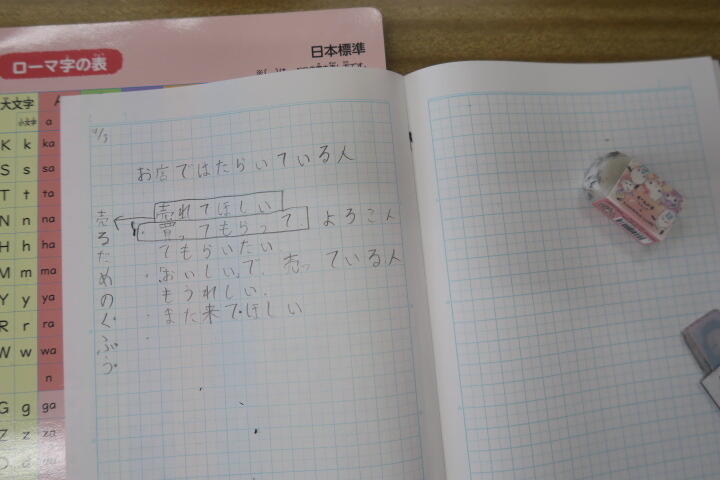 ローマ字の表
日本標準
大文字
小文字 a
K k ka
S s sa
T t ta
N n na
H h ha
M m ma
Y y ya
R r ra
W w wa
n
G g ga
Z z za
お店ではたらいている人
売れてほしい
・買ってもらって よろこん
てもらいたい.
・おいしいで、売っている人
もうれしい.
・また来てほしい
・
売るためのくふう